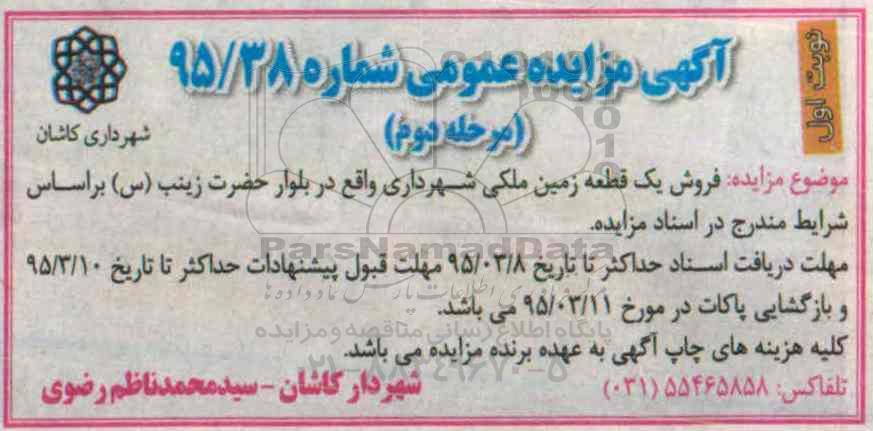 نوبت اول
آگهی مزایده عمومی شماره ۹۵/۳۸
(مرحله دوم)
شهرداری کاشان
موضوع مزایده: فروش یک قطعه زمین ملکی شهرداری واقع در بلوار حضرت زینب (س) براساس
شرایط مندرج در اسناد مزایده.
ParsNamadData
مهلت دریافت اسناد حداکثر تا تاریخ ۹۵/۰۳/۸ مهلت قبول پیشنهادات حداکثر تا تاریخ ۹۵/۳/۱۰
و بازگشایی پاکات در مورخ ۹۵/۰۳/۱۱ می باشد.
پایگاه اطلاع رسانی مناقصه و مزایده
کلیه هزینه های چاپ آگهی به عهده برنده مزایده می باشد.
تلفاکس: ۵۵۴۶۵۸۵۸ (۰۳۱)
شهردار کاشان - سیدمحمدناظم رضوی